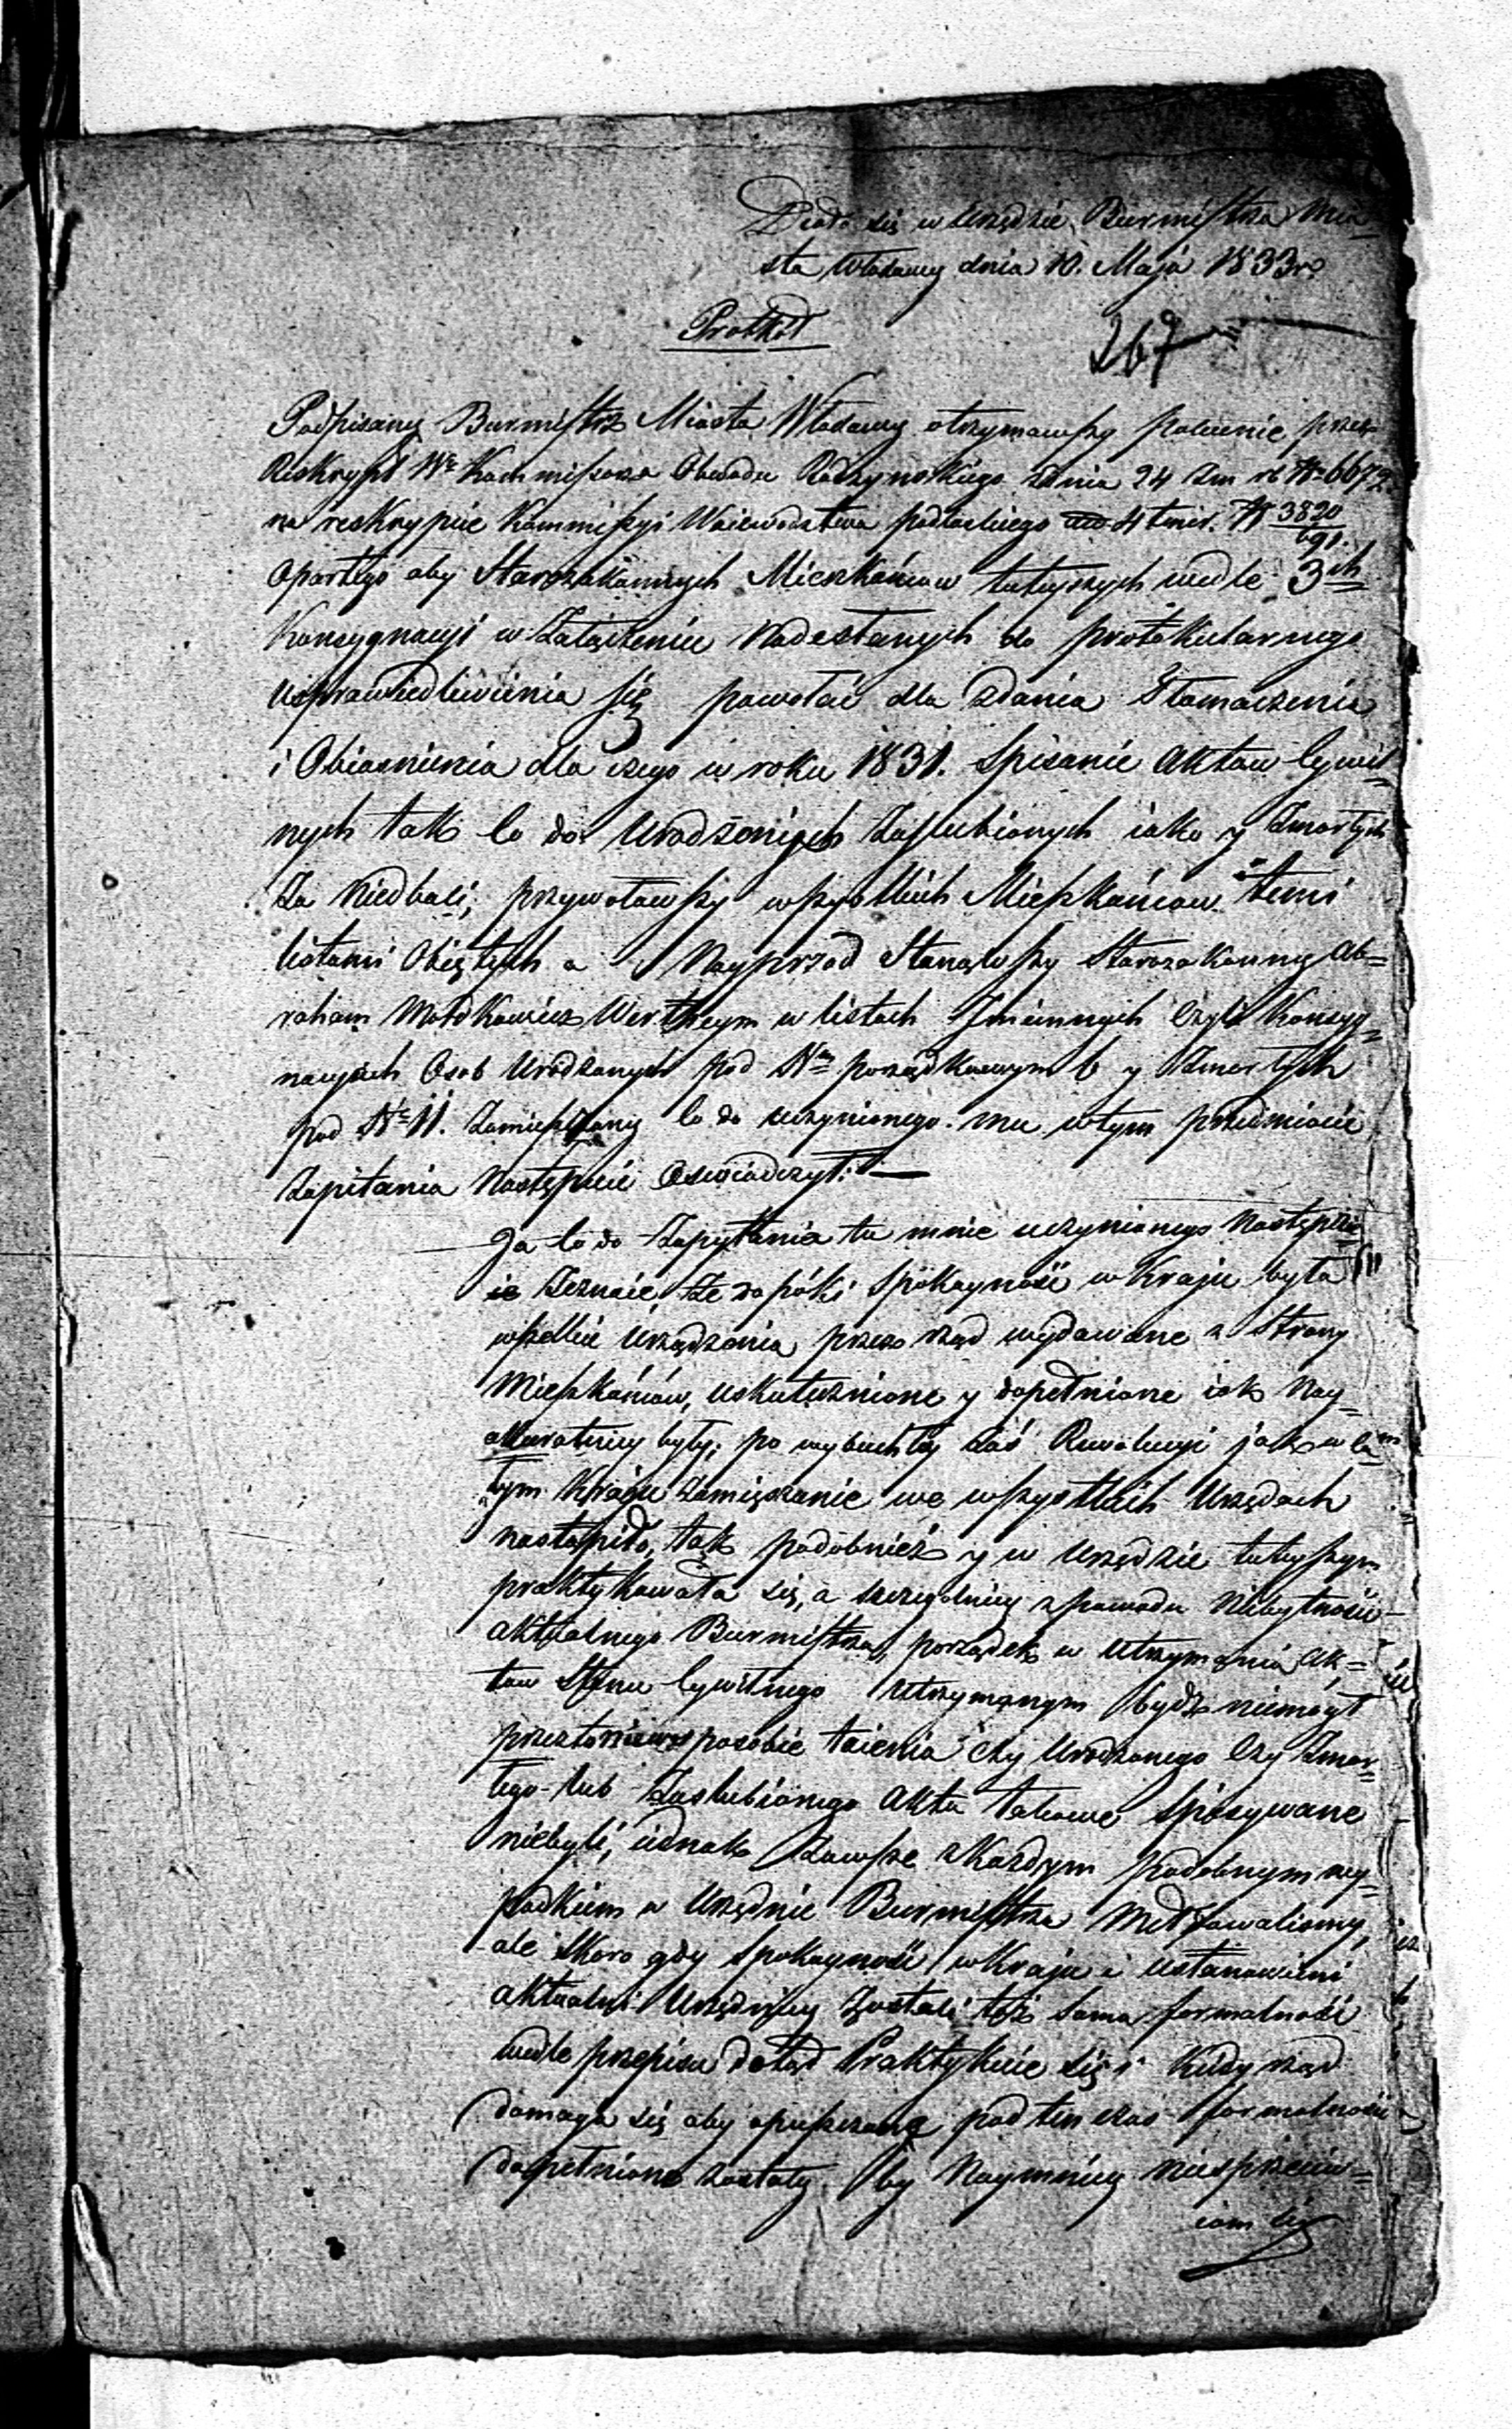 Działo się w Urzędzie Burmistrza Mia=
sta Włodawy dnia 10. Maja 1833 r.
Protkół
267
Podpisany Burmistrz Miasta Włodawy otrzymawszy polecenie przez
Reskrypt Wo Kommissarza Obwodu Radzynskiego z dnia 24 rb No 6672
na reskrypcie Kommissyi Woiewodztwa podlaskiego 4 No 3820/691.
opartego aby Starozakonnych Mieszkańcow tuteyszych wedle 3ch
Konsygnacyi w Załączeniu Nadesłanych do protokularnego
usprawiedliwienia się powołać dla zdania Tłomaczenia
i Obiasnienia dla czego w roku 1831. Spisanie Aktow Cywil=
nych tak Co do Urodzonych Zaslubionych iako y Zmarłych
Zaniedbali; przywoławszy wszystkich Mieszkańcow temi
Listami Obiętych a Nayprzod Stanąwszy Starozakonny Ab=
raham Mordkowicz Wertheym w listach Imiennych Czyli Konsyg=
nacyach Osob Urodzonych pod Nrm porządkowym 6 y Zmarłych
pod No 11. Zamieszczony Co do uczynionego mu w tym przedmiocie
Zapitania Następnie Oswiadczył:
Ja Co do Zapytania tu mnie uczynionego Następn
ie Zeznaie, Że dopóki Spokoyność w Kraju była
wszelkie Urządzenia przez rząd wydawane z Strony
Mieszkańców, uskutecznione y dopełnione iak Nay=
akuratniey były; po wybuchłey zaś Rewolucyi jak w ca=
łym Kraju Zamięszanie we wszystkich Urzędach
nastąpiło, tak podobnież y w Urzędzie tuteyszym
praktykowała się, a szczegolniey z powodu Niebytności
aktualnego Burmistrza, porządek w Utrzymania Ak=
tow Stanu Cywilnego utrzymanym bydz niemógł
przeto sposobie taienia czy Urodzonego Czy Zmar=
łego lub Zaslubionego Akta takowe Spisywane
niebyli, iednak Zawsze z Każdym podobnym wy=
padkiem w Urzędzie Burmistrza Meldowalismy,
ale Skoro gdy Spokoyność w Kraju i ustanowieni
aktualni Urzędnicy Zostali też Sama formalność
wedle przepisu dotąd Praktykuie się i Kiedy rząd
domaga się aby opuszczone pod ten czas formalności
dopełniono zostały by Naymniey niesprzeciw=
iam się